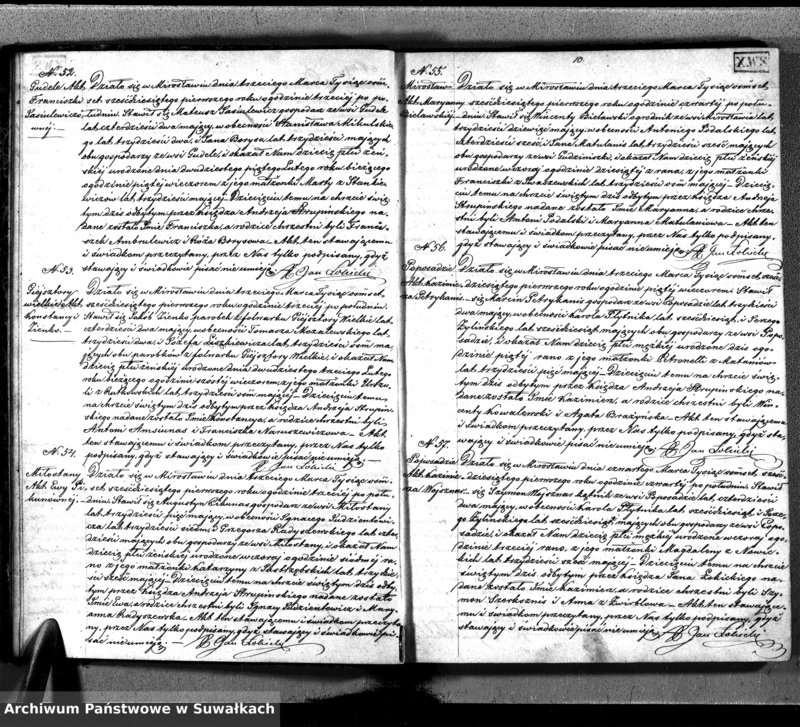 N. 52.
Pudele Akt Działo się w Mirosławiu dnia trzeciego Marca Tysiąc ośm-
Franciszki set sześćdziesiątego pierwszego roku o godzinie trzeciej po po-
łudniu Stawił się Mateusz gospodarz ze wsi Pudele
lat czterdzieści dwa mający, w obecności Stanisława Mikulskiego
lat trzydzieści dwa, i Jana Borysa lat trzydzieści mających
obu gospodarzy ze wsi Pudele, i okazał Nam dziecię płci żeń-
skiej urodzone dnia dwudziestego piątego Lutego roku bieżącego
o godzinie piątej wieczorem z jego małżonki Marty z
lat trzydzieści mającej. Dziecięciu temu na chrzcie świę-
tym dziś odbytym przez księdza Andrzeja Strupińskiego na-
dane zostało Imię Franciszka, a rodzice chrzestni byli Franci-
szek Ambrulewicz i Róża Borysowa. Akt ten stawającemu
i świadkom przeczytany, przez Nas tylko podpisany, gdyż
stawający i świadkowie pisać nie umieją. X Jan
N. 53.
Działo się w Mirosławiu dnia trzeciego Marca Tysiąc ośmset
wielkie Akt sześćdziesiątego pierwszego roku o godzinie trzeciej po południu
Konstancyi Stawił się Jakób Zienko parobek z folwarku Wielkie lat
Zienko. czterdzieści dwa mający, w obecności Tomasza lat
trzydzieści dwa, i Józefa lat trzydzieści ośm ma-
jących obu parobków z folwarku Wielkie, i okazał Nam
dziecię płci żeńskiej urodzone dnia dwudziestego trzeciego Lutego
roku bieżącego o godzinie szóstej wieczorem z jego małżonki
z Rutkowskich lat trzydzieści ośm mającej. Dziecięciu temu
na chrzcie świętym dziś odbytym przez księdza Andrzeja Strupiń-
skiego nadane zostało Imię Konstancya, a rodzice chrzestni byli
Antoni i Franciszka Naruszewiczowa. Akt
ten stawającemu i świadkom przeczytany, przez Nas tylko
podpisany, gdyż stawający i świadkowie pisać nie umieją.
X Jan
N. 54.
Miłostany Działo się w Mirosławiu dnia trzeciego Marca Tysiąc ośm-
Akt Ewy set sześćdziesiątego pierwszego roku o godzinie trzeciej po połu-
dniu, Stawił się Augustyn gospodarz ze wsi Miłostany
lat trzydzieści mający, w obecności Ignacego
lat trzydzieści siedm i Grzegorza Radyszewskiego lat czter-
dzieści mających obu gospodarzy ze wsi Miłostany, i okazał Nam
dziecię płci żeńskiej urodzone wczoraj o godzinie siódmej ra-
no z jego małżonki Katarzyny z lat trzydzie-
ści sześć mającej. Dziecięciu temu na chrzcie świętym dziś odby-
tym przez księdza Andrzeja Strupińskiego nadane zostało
Imię Ewa, a rodzice chrzestni byli Ignacy i Mary-
anna Radyszewska. Akt ten stawającemu i świadkom przeczyta-
ny, przez Nas tylko podpisany, gdyż stawający i świadkowie pi-
sać nie umieją. X Jan
10
N. 55.
Mirosław Działo się w Mirosławiu dnia trzeciego Marca Tysiąc ośmset
Akt Maryanny sześćdziesiątego pierwszego roku o godzinie czwartej po połu-
Bielawskiej dniu Stawił się Wincenty Bielawski ogrodnik ze wsi Mirosławia lat
trzydzieści dziewięć mający, w obecności Antoniego Podalskiego lat
czterdzieści sześć, i Jana Matulania lat trzydzieści sześć mających
obu gospodarzy ze wsi i okazał Nam dziecię płci żeńskiej
urodzone wczoraj o godzinie dziesiątej z rana, z jego małżonki
Franciszki z lat trzydzieści ośm mającej. Dziecię-
ciu temu na chrzcie świętym dziś odbytym przez księdza Andrzeja
Strupińskiego nadane zostało Imię Maryanna, a rodzice chrze-
stni byli Antoni Podalski i Maryanna Matulaniowa. Akt ten
stawającemu i świadkom przeczytany, przez Nas tylko podpisany,
gdyż stawający i świadkowie pisać nie umieją. X Jan
N. 56.
Poposadzie Działo się w Mirosławiu dnia trzeciego Marca Tysiąc ośmset sześć-
Akt Kazimie- dziesiątego pierwszego roku o godzinie piątej wieczorem Stawił
rza Petrykanis się Marcin Petrykanis gospodarz ze wsi Poposadzie lat trzydzieści
dwa mający, w obecności Karola Plytnika lat sześćdziesiąt, i Jerzego
Żylińskiego lat sześćdziesiąt mających obu gospodarzy ze wsi Popo-
sadzie, i okazał Nam dziecię płci męzkiej urodzone dziś o go-
dzinie piątej rano z jego małżonki Petronelli z
lat trzydzieści pięć mającej. Dziecięciu temu na chrzcie świę-
tym dziś odbytym przez księdza Andrzeja Strupińskiego na-
dane zostało Imię Kazimierz, a rodzice chrzestni byli Win-
centy Kowalewski i Agata Brażyńska. Akt ten stawającemu
i świadkom przeczytany, przez Nas tylko podpisany, gdyż sta-
wający i świadkowie pisać nie umieją. X Jan
N. 57.
Poposadzie Działo się w Mirosławiu dnia czwartego Marca Tysiąc ośmset sześć-
Akt Kazimie- dziesiątego pierwszego roku o godzinie czwartej po południu Stawił
rza Wysznas się Szymon Wysznas ze wsi Poposadzie lat czterdzieści
dwa mający, w obecności Karola Plytnika lat sześćdziesiąt, i Jerze-
go Żylińskiego lat sześćdziesiąt, mających obu gospodarzy ze wsi Popo-
sadzie, i okazał Nam dziecię płci męzkiej urodzone wczoraj o go-
dzinie trzeciej rano, z jego małżonki Magdaleny z Nowic-
kich lat trzydzieści sześć mającej. Dziecięciu temu na chrzcie
świętym dziś odbytym przez księdza Jana na-
dane zostało Imię Kazimierz, a rodzice chrzestni byli Szy-
mon i Anna z Akt ten stawające-
mu i świadkom przeczytany, przez Nas tylko podpisany, gdyż
stawający i świadkowie pisać nie umieją. X Jan
Archiwum Państwowe w Suwałkach